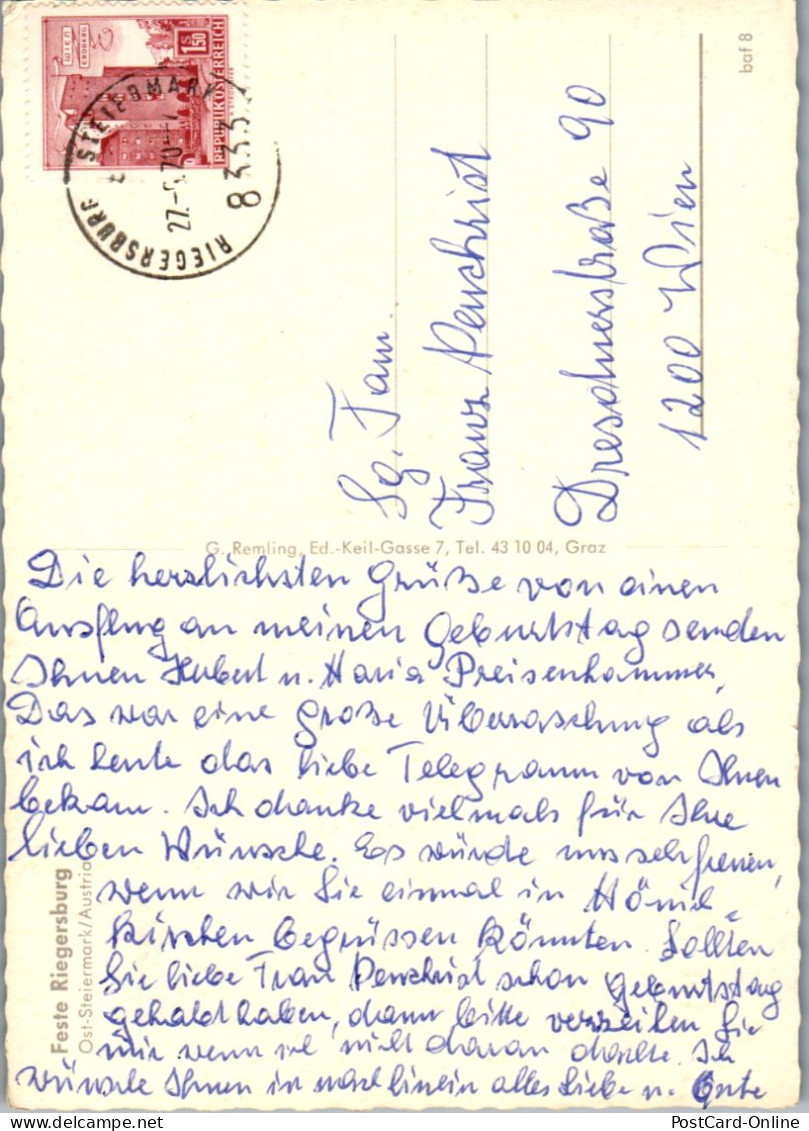 WIEN
ERDBERG
S 1.50
REPUBLIK ÖSTERREICH
RIEGERSBURG STEIERMARK
27.-5.70-17
8333
baf 8
Sg. Fam.
Franz Penchrist
Dresdnerstraße 90
1200 Wien
G. Remling, Ed.-Keil-Gasse 7, Tel. 43 10 04, Graz
Die herzlichsten Grüße von einen
Ausflug an meinen Geburtstag senden
Ihnen Hubert u. Maria Preisenhammer,
Das war eine große Überraschung als
ich heute das liebe Telegramm von Ihnen
bekam. Ich danke vielmals für Ihre
lieben Wünsche. Es würde uns sehr freuen,
wenn wir Sie einmal in Mönich-
kirchen begrüssen könnten. Sollten
Sie liebe Frau Penchrist schon Geburtstag
gehabt haben, dann bitte verzeihen Sie
mir wenn ich nicht daran dachte. Ich
wünsche Ihnen im nachhinein alles Liebe u. Gute
Feste Riegersburg
Ost-Steiermark/Austria
PostCard-Online